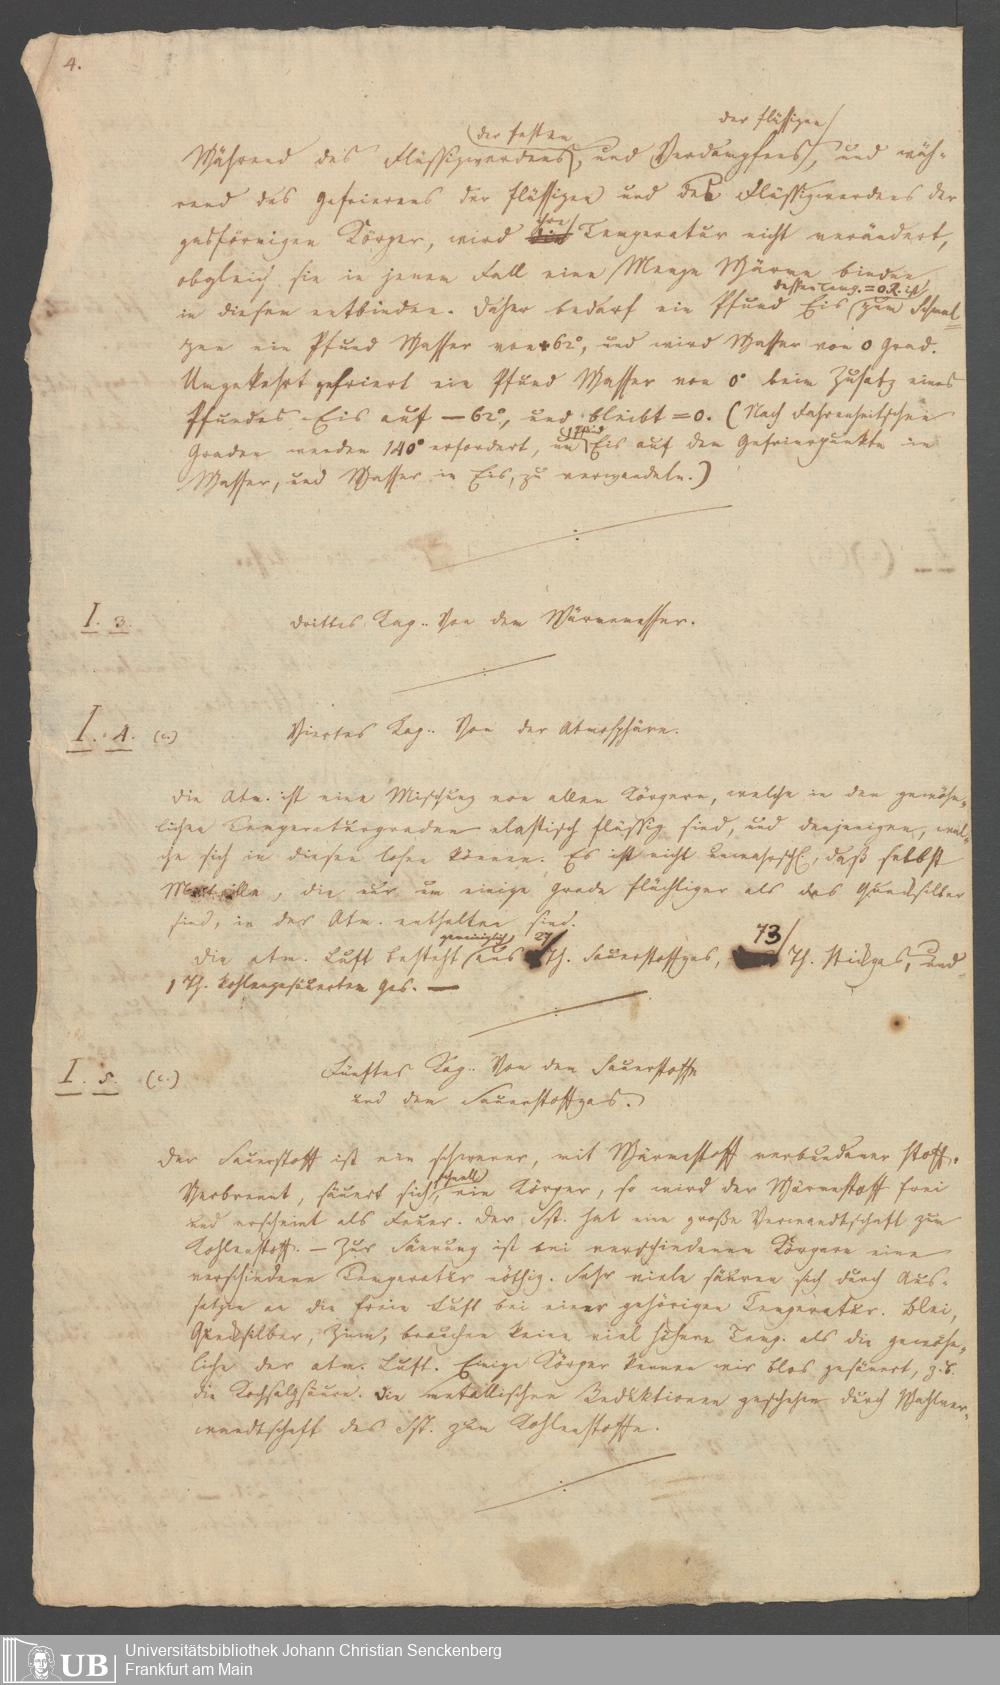 4.
der festen
der flüssigen
Während des Flüssigwerdens, und Verdampfens, und wäh-
rend des Gefrierens der flüssigen und des Flüssigwerdens der
ihre
gasförmigen Körper, wird die Temperatur nicht verändert,
obgleich sie in jenem Fall eine Menge Wärme binden
dessen Temp. = 0 R. ist
in diesem entbinden. Daher bedarf ein Pfund Eis zum Schmel=
zen ein Pfund Wasser von + 62°, und wird Wasser von 0 Grad.
Umgekehrt gefriert ein Pfund Wasser von 0° beim Zusatz eines
Pfundes Eis auf — 62°, und bleibt = 0. (Nach Fahrenheitschen
Graden werden 140° erfordert, um Eis auf dem Gefrierpunkte in
Wasser, und Wasser in Eis, zu verwandeln.)
I. 3.
Drittes Kap.. Von dem Wärmemesser.
I. 4. (c.)
Viertes Kap.. Von der Atmosphäre.
Die Atm. ist eine Mischung von allen Körpern, welche in den gewöhn-
lichen Temperaturgraden elastisch flüssig sind, und denjenigen, wel-
che sich in diesen lösen können. Es ist nicht unwahrschl., daß selbst
Metalle, die nur um einige Grade flüchtiger als das Quecksilber
sind, in der Atm. enthalten sind.
gemeiniglich 27 73
Die atm. Luft besteht aus Th. Sauerstoffgas, Th. Stickgas, und
1 Th. kohlengesäuertem Gas. —
I. 5. (c.)
Fünftes Kap.. Von dem Sauerstoffe
und dem Sauerstoffgas.
Der Sauerstoff ist ein schwerer, mit Wärmestoff verbundener Stoff.
schnell
Verbrennt, säuert sich, ein Körper, so wird der Wärmestoff frei
und erscheint als Feuer. Der Sst. hat eine große Verwandtschaft zum
Kohlenstoff. — Zur Säuerung ist bei verschiedenen Körpern eine
verschiedene Temperatur nöthig. Sehr viele säuren sich durch Aus-
setzen an die freie Luft bei einer gehörigen Temperatur. Blei,
Quecksilber, Zinn, brauchen keine viel höhere Temp. als die gewöhn-
liche der atm. Luft. Einige Körper kennen wir blos gesäuert, z.B.
die Kochsalzsäure. Die metallischen Reduktionen geschehen durch Wahlver-
wandtschaft des Sst. zum Kohlenstoffe.
UB
Universitätsbibliothek Johann Christian Senckenberg
Frankfurt am Main